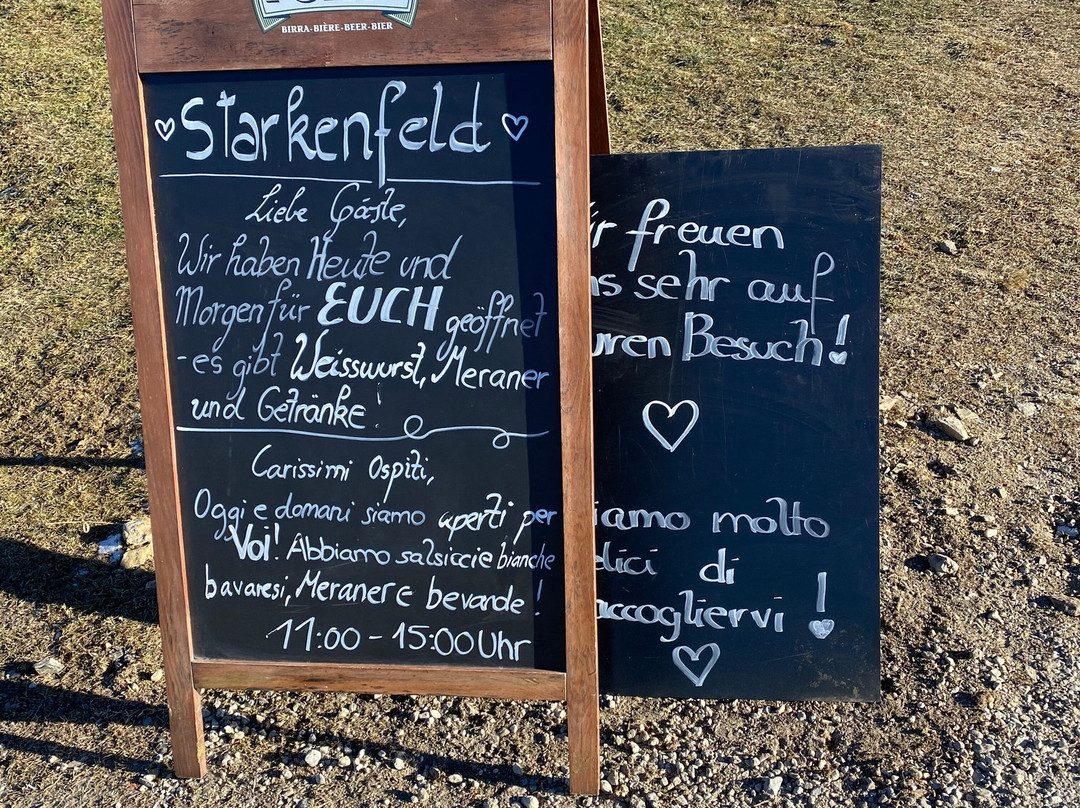 BIRRA-BIÈRE-BEER-BIER
Starkenfeld
Liebe Gäste,
Wir haben Heute und
Morgen für EUCH geöffnet
-es gibt Weisswurst, Meraner
und Getränke!
Carissimi Ospiti,
Oggi e domani siamo aperti per
Voi! Abbiamo salsiccie bianche
bavaresi, Meraner e bevande!
11:00-15:00 Uhr
freuen
sehr auf
Besuch!
molto
di